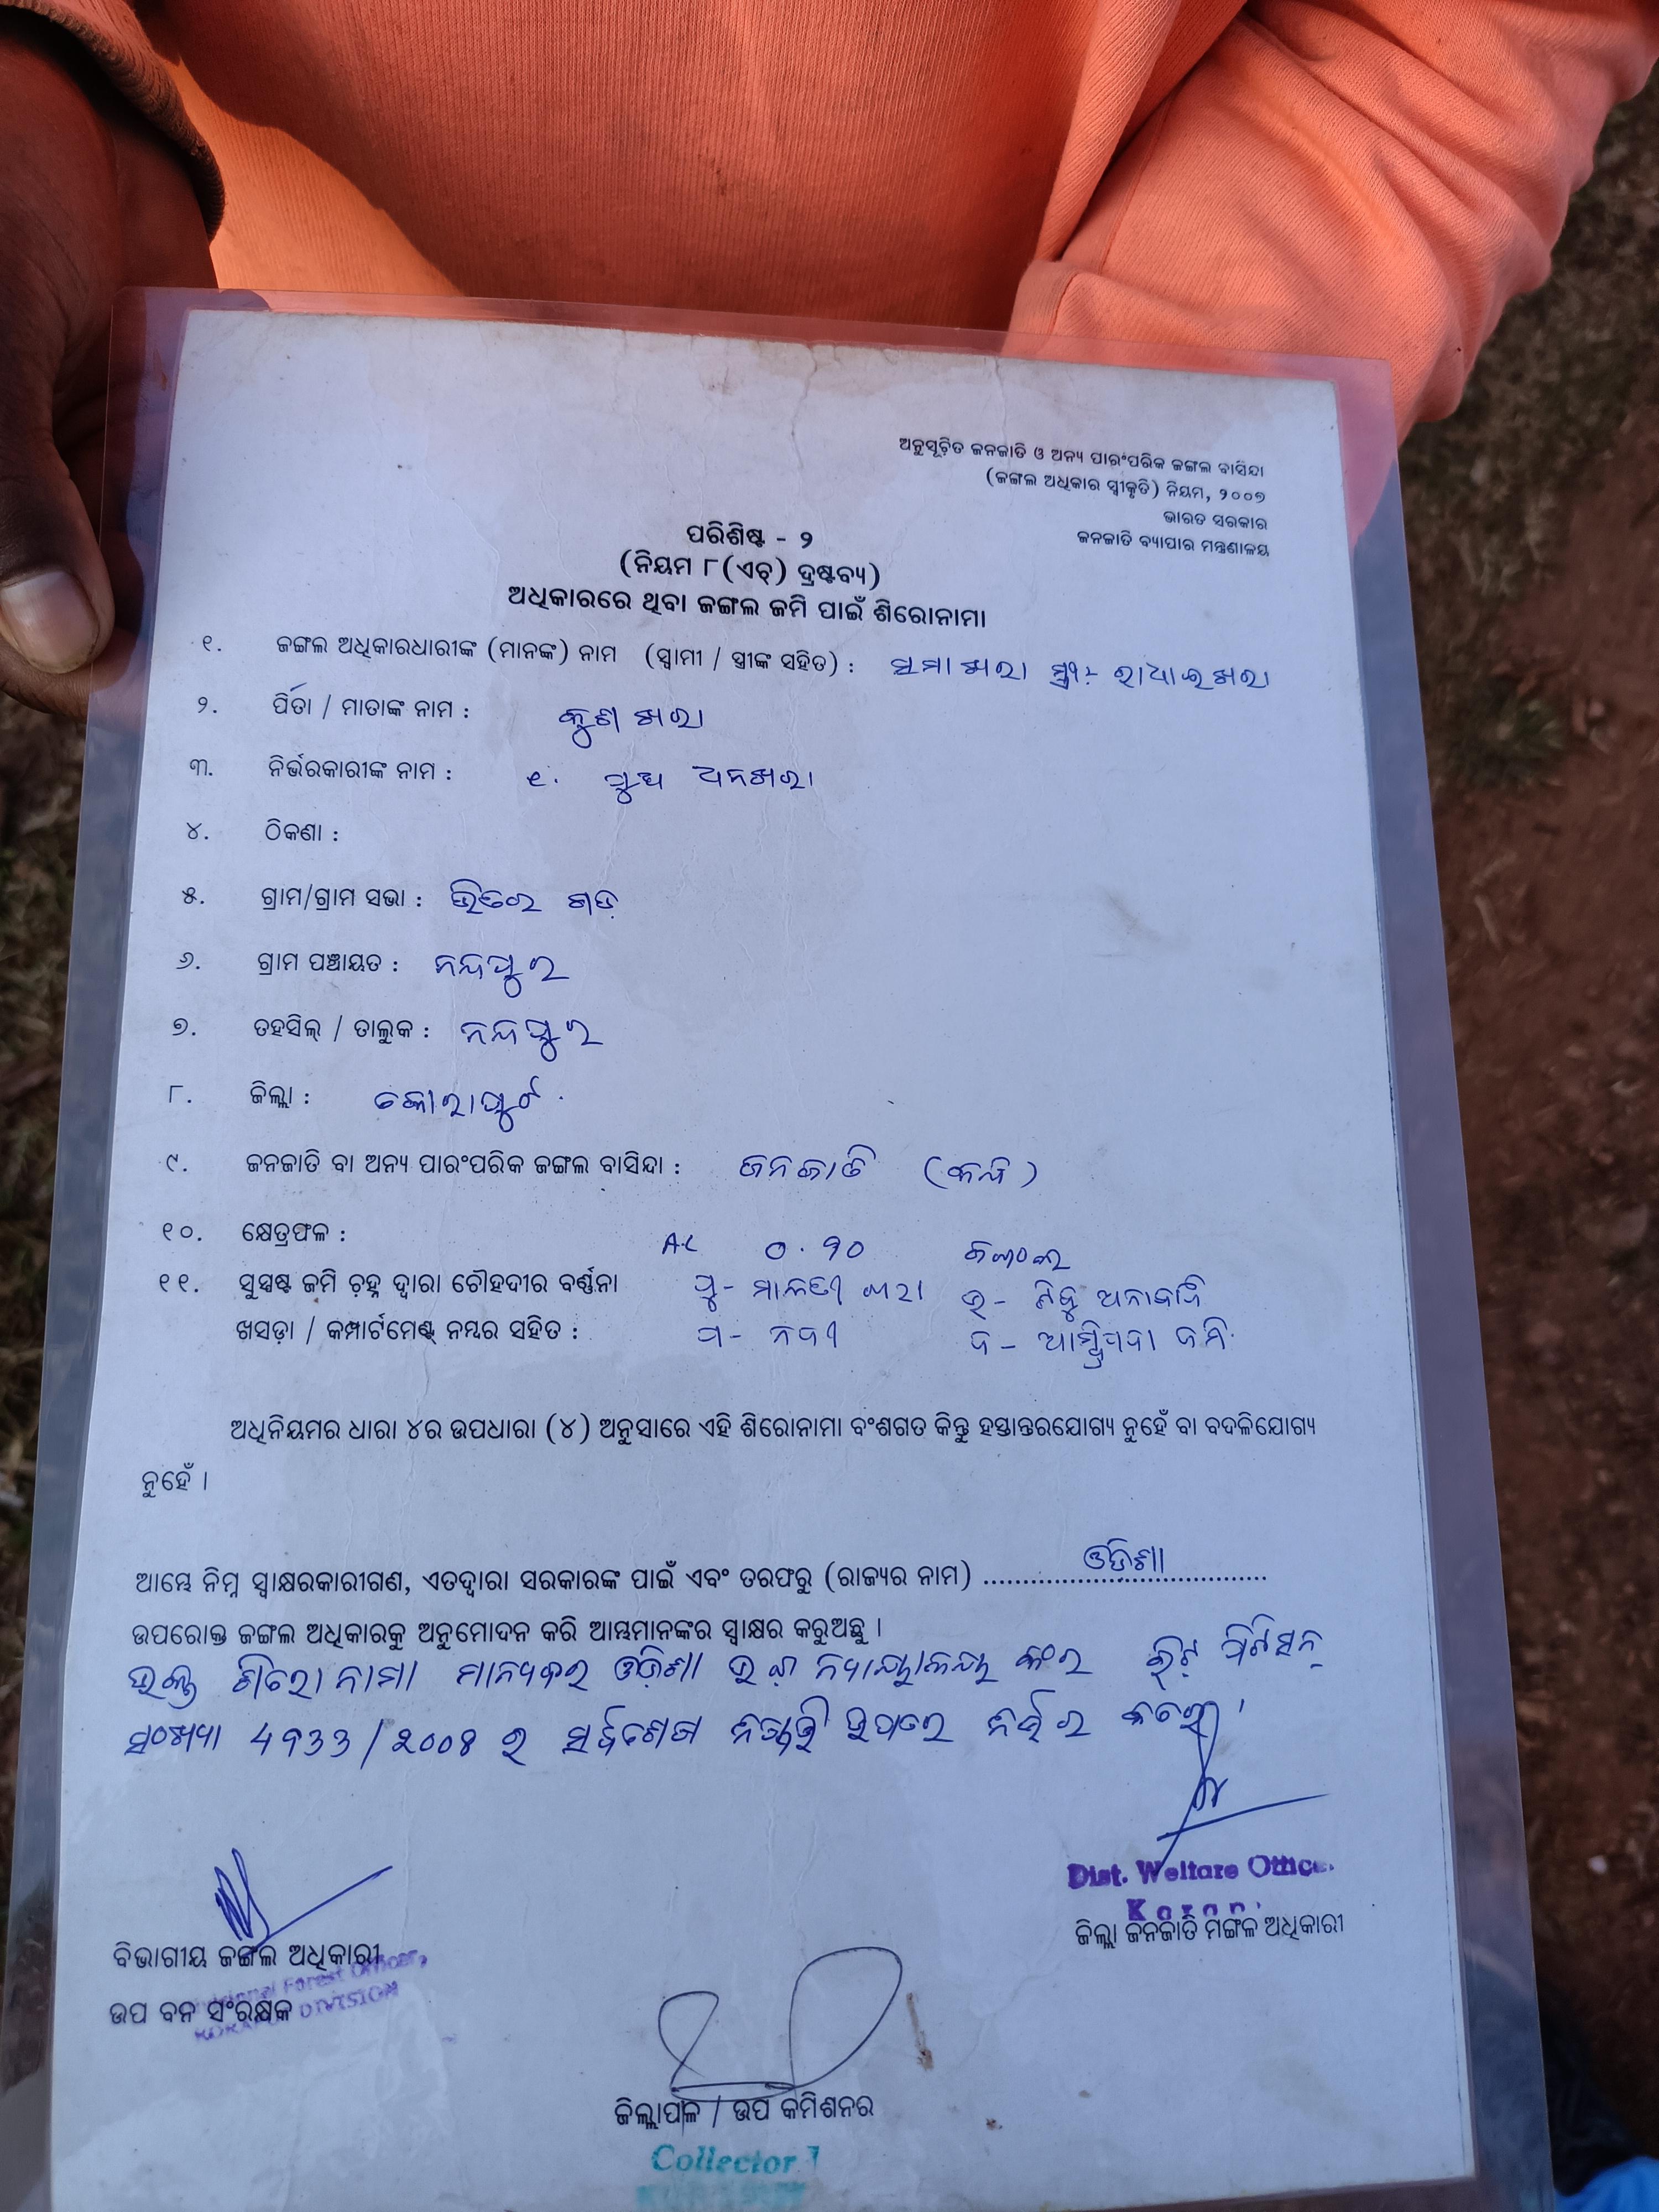 ଅନୁସୂଚିତ ଜନଜାତି ଓ ଅନ୍ୟ ପାରଂପରିକ ଜଙ୍ଗଲ ବାସିନ୍ଦା
(ଜଙ୍ଗଲ ଅଧିକାର ସ୍ୱୀକୃତି) ନିୟମ, ୨୦୦୭
ଭାରତ ସରକାର
ଜନଜାତି ବ୍ୟାପାର ମନ୍ତ୍ରଣାଳୟ
ପରିଶିଷ୍ଟ - ୨
(ନିୟମ ୮(ଏଚ୍) ଦ୍ରଷ୍ଟବ୍ୟ)
ଅଧିକାରରେ ଥିବା ଜଙ୍ଗଲ ଜମି ପାଇଁ ଶିରୋନାମା
୧. ଜଙ୍ଗଲ ଅଧିକାରଧାରୀଙ୍କ (ମାନଙ୍କ) ନାମ (ସ୍ୱାମୀ / ସ୍ତ୍ରୀଙ୍କ ସହିତ) : ଖରା
୨. ପିତା / ମାତାଙ୍କ ନାମ : ଖରା
୩. ନିର୍ଭରକାରୀଙ୍କ ନାମ : ୧.
୪. ଠିକଣା :
୫. ଗ୍ରାମ/ଗ୍ରାମ ସଭା : ଭିତର ଗଡ଼
୬. ଗ୍ରାମ ପଞ୍ଚାୟତ : ନନ୍ଦପୁର
୭. ତହସିଲ୍ / ତାଲୁକ : ନନ୍ଦପୁର
୮. ଜିଲ୍ଲା : କୋରାପୁଟ
୯. ଜନଜାତି ବା ଅନ୍ୟ ପାରଂପରିକ ଜଙ୍ଗଲ ବାସିନ୍ଦା : ଜନଜାତି
୧୦. କ୍ଷେତ୍ରଫଳ : AC
୧୧. ସୁସ୍ପଷ୍ଟ ଜମି ଚ଼ହ୍ନ ଦ୍ୱାରା ଚୌହଦୀର ବର୍ଣ୍ଣନା ପୁ- ମାଳତୀ ଖରା ଉ-
ଖସଡ଼ା / କମ୍ପାର୍ଟମେଣ୍ଟ୍ ନମ୍ବର ସହିତ : ପ- ନଦୀ ଦ- ଜମି
ଅଧିନିୟମର ଧାରା ୪ର ଉପଧାରା (୪) ଅନୁସାରେ ଏହି ଶିରୋନାମା ବଂଶଗତ କିନ୍ତୁ ହସ୍ତାନ୍ତରଯୋଗ୍ୟ ନୁହେଁ ବା ବଦଳିଯୋଗ୍ୟ
ନୁହେଁ ।
ଆମ୍ଭେ ନିମ୍ନ ସ୍ୱାକ୍ଷରକାରୀଗଣ, ଏତଦ୍ୱାରା ସରକାରଙ୍କ ପାଇଁ ଏବଂ ତରଫରୁ (ରାଜ୍ୟର ନାମ) ଓଡିଶା
ଉପରୋକ୍ତ ଜଙ୍ଗଲ ଅଧିକାରକୁ ଅନୁମୋଦନ କରି ଆମ୍ଭମାନଙ୍କର ସ୍ୱାକ୍ଷର କରୁଅଛୁ ।
ଉକ୍ତ ଶିରୋନାମା ମାନ୍ୟବର ଓଡ଼ିଶା ଉଚ୍ଚ ନ୍ୟାୟାଳୟ ଙ୍କର ରିଟ୍ ପିଟିସନ୍
ସଂଖ୍ୟା 4933/୨୦୦୫ ର ଉପରେ ନିର୍ଭର କରେ
Dist. Welfare Officer
ଜିଲ୍ଲା ଜନଜାତି ମଙ୍ଗଳ ଅଧିକାରୀ
ବିଭାଗୀୟ ଜଙ୍ଗଲ ଅଧିକାରୀ
Divisional Forest Officer,
ଉପ ବନ ସଂରକ୍ଷକ
KORAPUT DIVISION
ଜିଲ୍ଲାପାଳ / ଉପ କମିଶନର
Collector